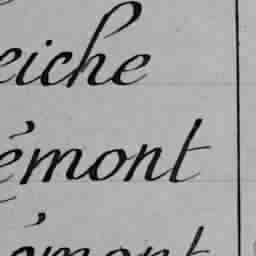 eiche
émont
émont